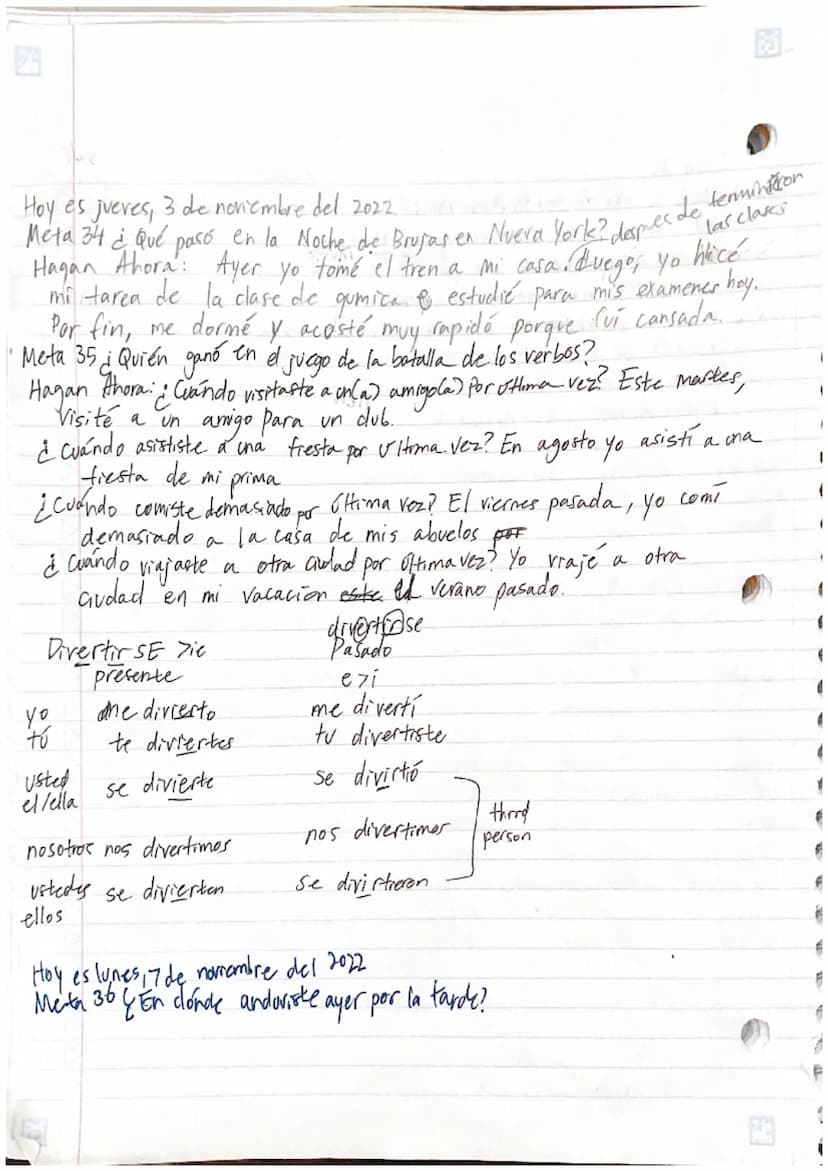 Hoy es jueves, 3 de noviembre del 2022
Meta 34 ¿Qué pasó en la Noche de Brujas en Nueva York? despues de terminaron
las clases
Hagan Ahora: Ayer yo tomé el tren a mi casa. Luego, yo hicé
mi tarea de la clase de qumica e estudié para mis examenes hoy.
Por fin, me dormé y acosté muy rapidó porque fui cansada.
Meta 35 ¿Quién ganó en el juego de la batalla de los verbos?
Hagan Ahora: ¿Cuándo visitaste a un(a) amigo(a) por última vez? Este martes,
visité a un amigo para un club.
¿Cuándo asististe a una fiesta por última vez? En agosto yo asistí a una
fiesta de mi prima
¿Cuándo comiste demasiado por última vez? El viernes pasada, yo comí
demasiado a la casa de mis abuelos por
¿Cuándo viajaste a otra ciudad por última vez? Yo viajé a otra
ciudad en mi vacacion este el verano pasado.
divertirse
DivertirSE >ie Pasado
presente e>i
yo me divierto me divertí
tú te diviertes tu divertiste
usted se divierte se divirtió
el/ella
third
person
nosotros nos divertimos nos divertimos
ustedes se divierten se divirtieron
ellos
Hoy es lunes, 7 de noviembre del 2022
Meta 36 ¿En dónde anduviste ayer por la tarde?